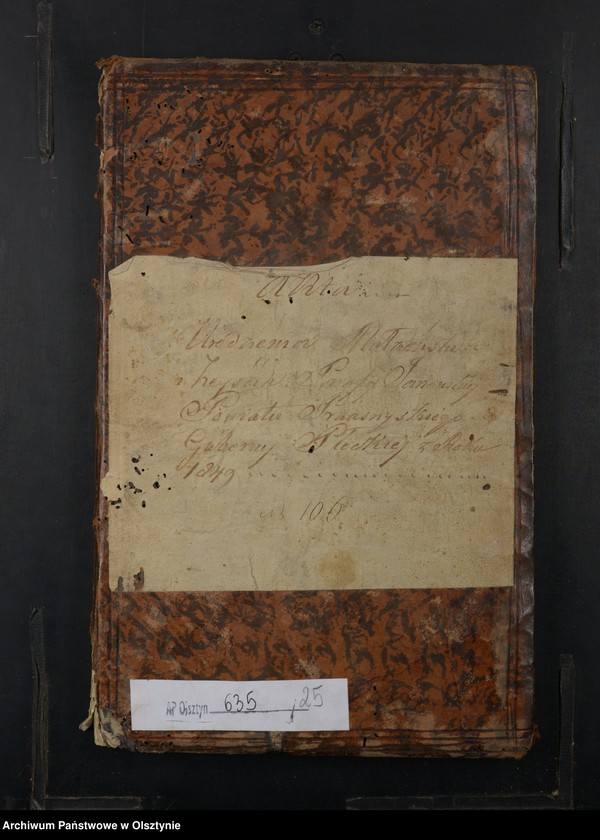 Akta
Urodzenia Małżeństw
i Zeyścia Parafij Janowskiy
Powiatu Praasnyskiego
Guberny Płockiej z Roku
1849
N 106
AP Olsztyn 635 / 25
Archiwum Państwowe w Olsztynie